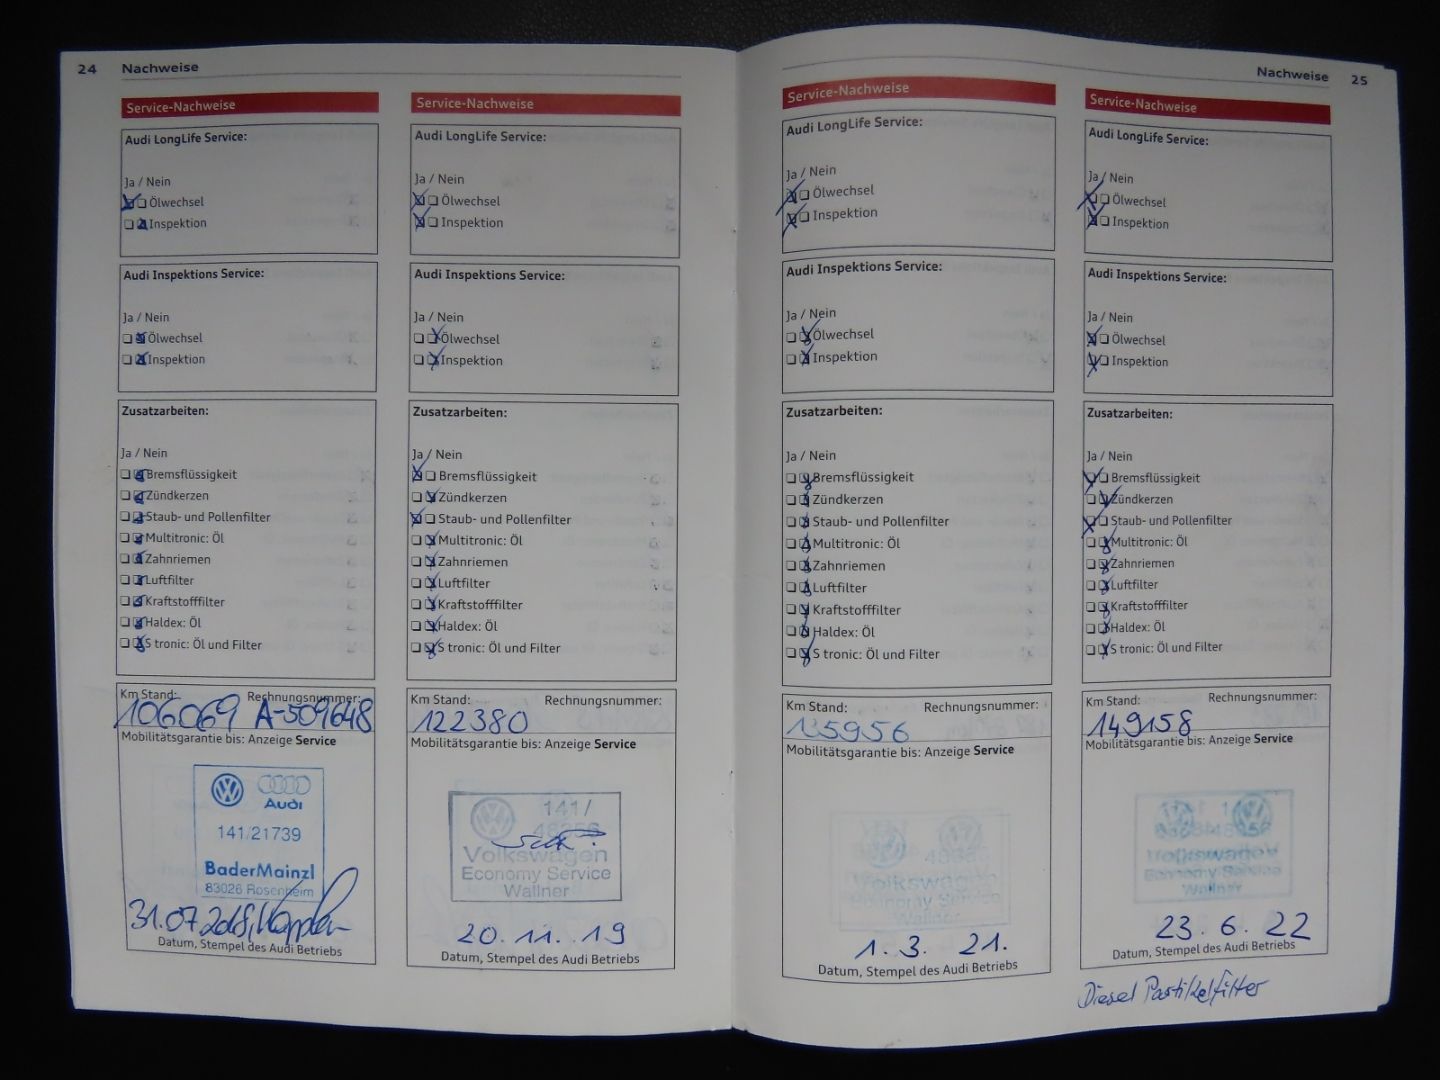 24 Nachweise
Service-Nachweise
Audi LongLife Service:
Ja / Nein
Ölwechsel
Inspektion
Audi Inspektions Service:
Ja / Nein
Ölwechsel
Inspektion
Zusatzarbeiten:
Ja / Nein
Bremsflüssigkeit
Zündkerzen
Staub- und Pollenfilter
Multitronic: Öl
Zahnriemen
Luftfilter
Kraftstofffilter
Haldex: Öl
S tronic: Öl und Filter
Km Stand: Rechnungsnummer:
106069 A-509648
Mobilitätsgarantie bis: Anzeige Service
Audi
141/21739
BaderMainzl
83026 Rosenheim
31.07.2018
Datum, Stempel des Audi Betriebs
Service-Nachweise
Audi LongLife Service:
Ja / Nein
Ölwechsel
Inspektion
Audi Inspektions Service:
Ja / Nein
Ölwechsel
Inspektion
Zusatzarbeiten:
Ja / Nein
Bremsflüssigkeit
Zündkerzen
Staub- und Pollenfilter
Multitronic: Öl
Zahnriemen
Luftfilter
Kraftstofffilter
Haldex: Öl
S tronic: Öl und Filter
Km Stand: Rechnungsnummer:
122380
Mobilitätsgarantie bis: Anzeige Service
141/
Volkswagen
Economy Service
Wallner
20. 11. 19
Datum, Stempel des Audi Betriebs
Nachweise 25
Service-Nachweise
Audi LongLife Service:
Ja / Nein
Ölwechsel
Inspektion
Audi Inspektions Service:
Ja / Nein
Ölwechsel
Inspektion
Zusatzarbeiten:
Ja / Nein
Bremsflüssigkeit
Zündkerzen
Staub- und Pollenfilter
Multitronic: Öl
Zahnriemen
Luftfilter
Kraftstofffilter
Haldex: Öl
S tronic: Öl und Filter
Km Stand: Rechnungsnummer:
135956
Mobilitätsgarantie bis: Anzeige Service
Volkswagen
Economy Service
Wallner
1. 3. 21.
Datum, Stempel des Audi Betriebs
Service-Nachweise
Audi LongLife Service:
Ja / Nein
Ölwechsel
Inspektion
Audi Inspektions Service:
Ja / Nein
Ölwechsel
Inspektion
Zusatzarbeiten:
Ja / Nein
Bremsflüssigkeit
Zündkerzen
Staub- und Pollenfilter
Multitronic: Öl
Zahnriemen
Luftfilter
Kraftstofffilter
Haldex: Öl
S tronic: Öl und Filter
Km Stand: Rechnungsnummer:
149158
Mobilitätsgarantie bis: Anzeige Service
Volkswagen
Economy Service
Wallner
23. 6. 22
Datum, Stempel des Audi Betriebs
Diesel Partikelfilter